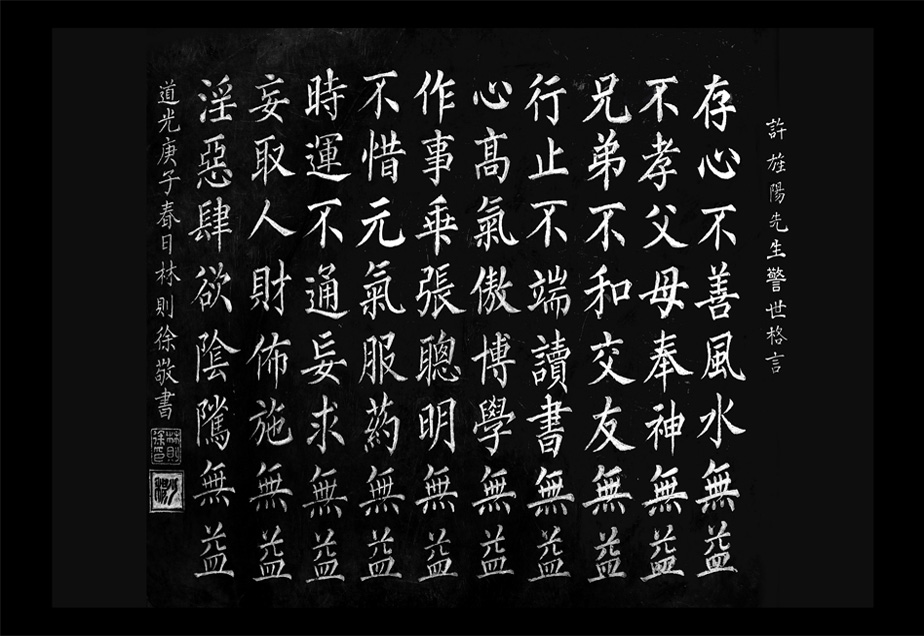 許旌陽先生警世格言
存心不善風水無益
不孝父母奉神無益
兄弟不和交友無益
行止不端讀書無益
心髙氣傲博學無益
作事乖張聰明無益
不惜元氣服葯無益
時運不通妄求無益
妄取人財佈施無益
淫惡肆欲陰騭無益
道光庚子春日林則徐敬書
林則徐印